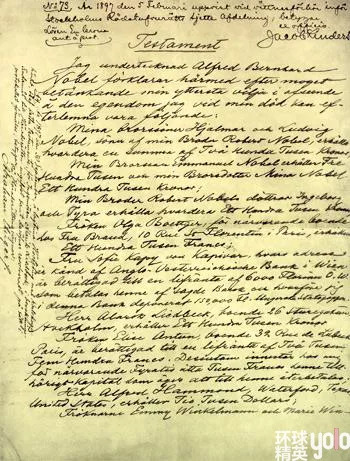 No 73. År 1897 den 5 Februari uppvist vid vittnesförhör inför
Stockholms Rådstufvurätts sjette Afdelning, betygar
ex officio
Testament
Jag undertecknad Alfred Bernhard
Nobel förklarar härmed efter moget
betänkande min yttersta vilja i afseende
å den egendom jag vid min död kan ef-
terlemna vara följande:
Mina Brorsöner Hjalmar och Ludvig
Nobel, söner af min Broder Robert Nobel, erhålla
hvardera en summa af Två Hundra Tusen Kronor
Min Brorson Emmanuel Nobel erhåller Tre
Hundra Tusen och min Brorsdotter Mina Nobel
Ett Hundra Tusen Kronor;
Min Broder Robert Nobels döttrar Ingeborg
och Tyra erhålla hvardera Ett Hundra Tusen Kronor
Fröken Olga Boettger, för närvarande boende
hos Fru Brand, 10 Rue St Florentin i Paris, erhåller
Ett Hundra Tusen Francs;
Fru Sofie Kapy von Kapivar, hvars adress
är känd af Anglo-Oesterreichische Bank i Wien
är berättigad till en lifränta af 6000 Florins Ö.W.
som betalas henne af sagde Bank och hvarför jag
i denna Bank deponerat 150,000 Fl. i Ungerska Statspapper
Herr Alarik Liedbeck, boende 26 Sturegatan,
Stockholm, erhåller Ett Hundra Tusen Kronor;
Fröken Elise Antun, boende 32 Rue de Lubeck,
Paris, är berättigad till en lifränta af Två Tusen
Fem Hundra Francs. Desutom innestår hos mig
för närvarande Fyratio åtta Tusen Francs henne till-
hörigt kapital som äger att till henne återbetalas;
Herr Alfred Hammond, Waterford, Texas,
United States, erhåller Tio Tusen Dollars;
Fröknarne Emmy Winkelmann och Marie Win-
环球
精英
yolo